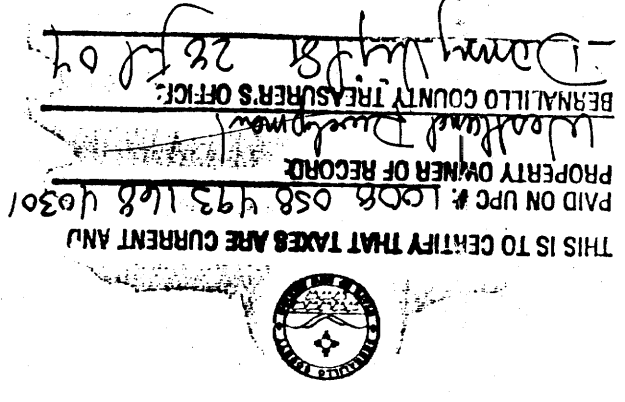 BERNALILLO COUNTY
THIS IS TO CERTIFY THAT TAXES ARE CURRENT AND
PAID ON UPC #: 1 008 058 493 168 40301
PROPERTY OWNER OF RECORD:
Westland Development
BERNALILLO COUNTY TREASURER'S OFFICE:
Danny 28 Jul 04